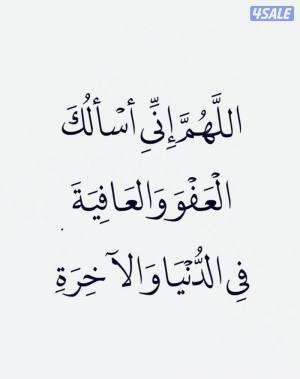 4SALE
اللَّهُمَّ إِنِّي أسْألُكَ
الْعَفْوَ وَالعَافِيَةَ
فِي الدُّنْيَا وَالآخِرَةِ